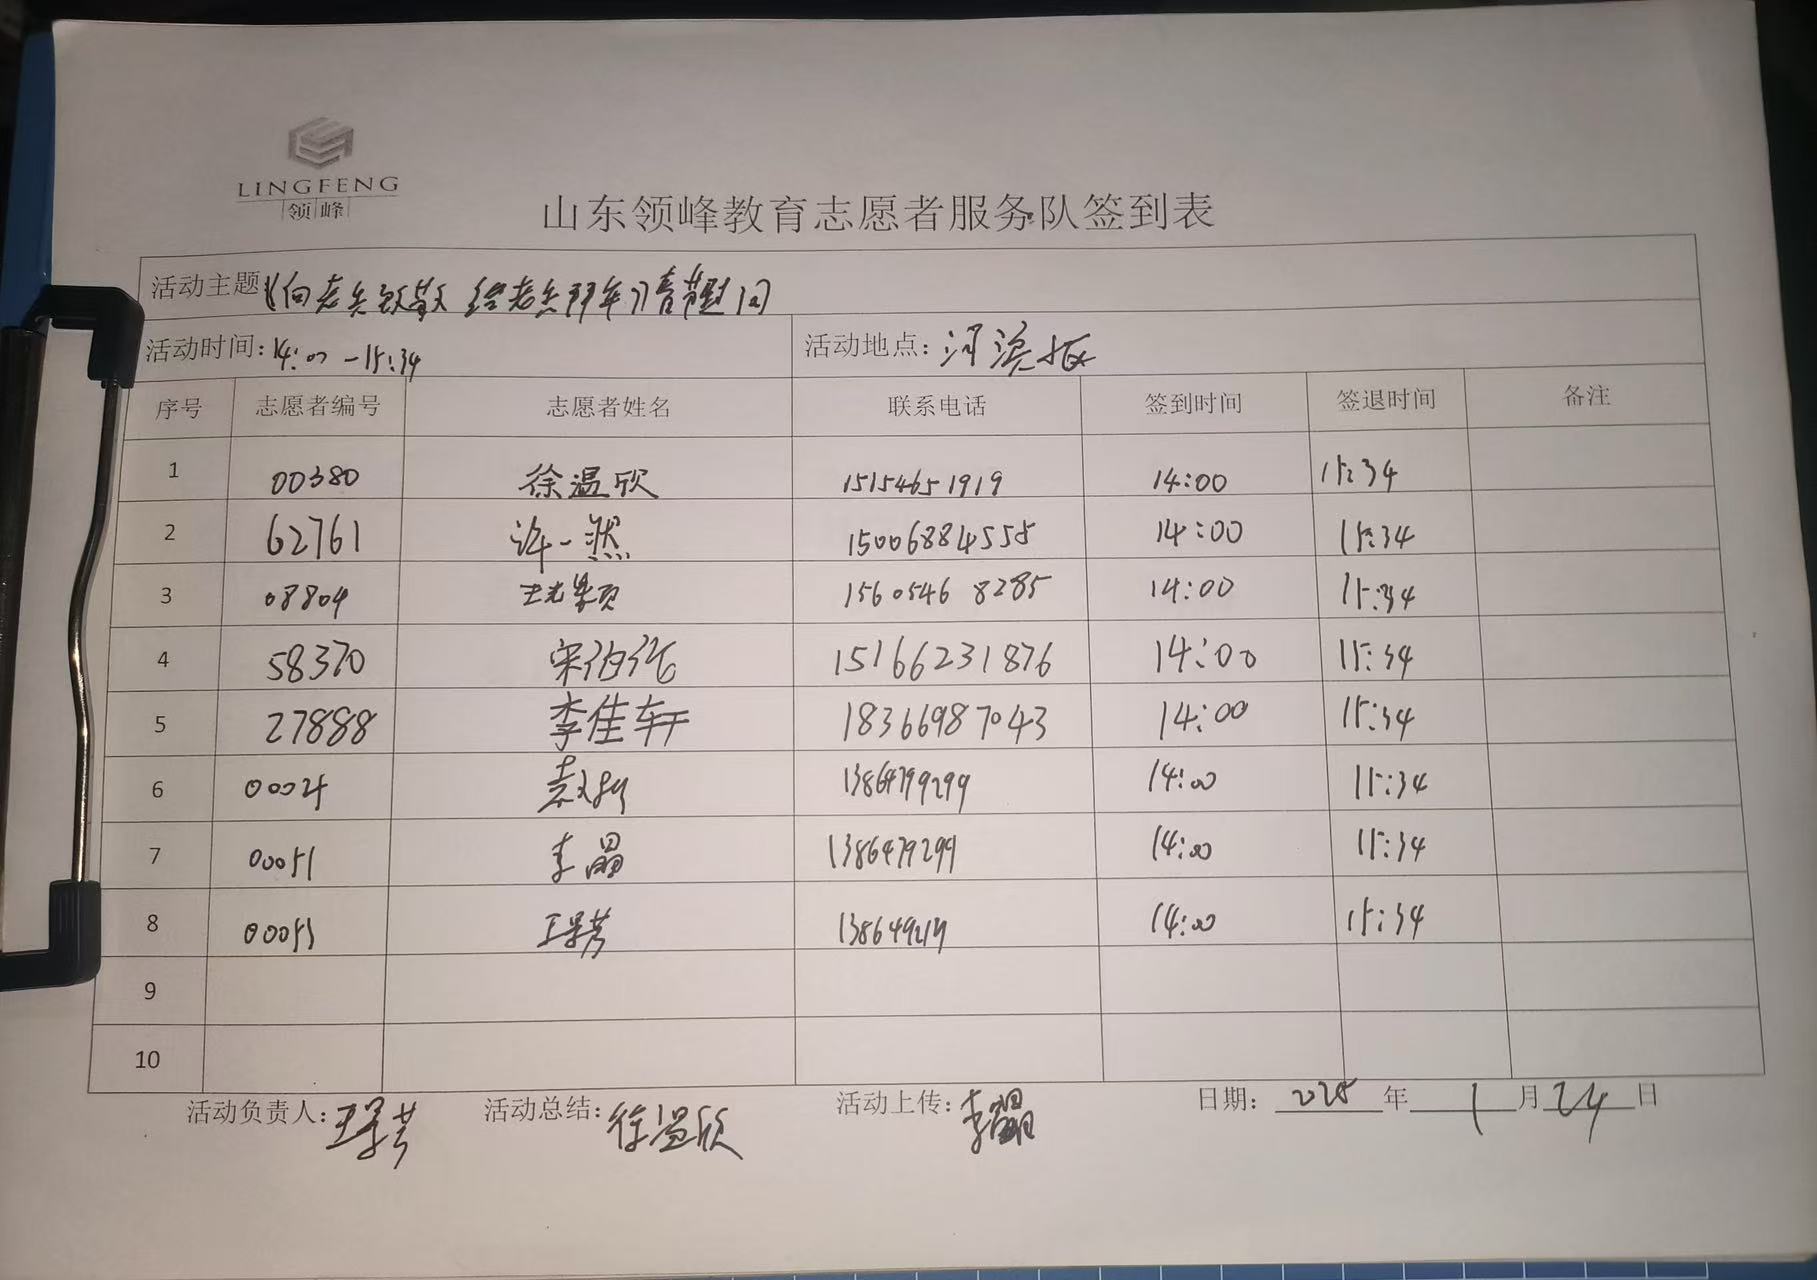 LINGFENG
领峰
山东领峰教育志愿者服务队签到表
活动主题《向老兵致敬 给老兵拜年》春节慰问
活动时间:14:00-15:34 活动地点:河滨
序号 志愿者编号 志愿者姓名 联系电话 签到时间 签退时间 备注
1 00380 徐温欣 15154651919 14:00 15:34
2 62761 许一然 15006884555 14:00 15:34
3 08804 15605468285 14:00 15:34
4 58370 宋伯 15166231876 14:00 15:34
5 27888 李佳轩 18366987043 14:00 15:34
6 14:00 15:34
7 00051 李晶 14:00 15:34
8 00053 王景芳 14:00 15:34
9
10
活动负责人:王景芳 活动总结:徐温欣 活动上传:李晶 日期:2025年1月24日